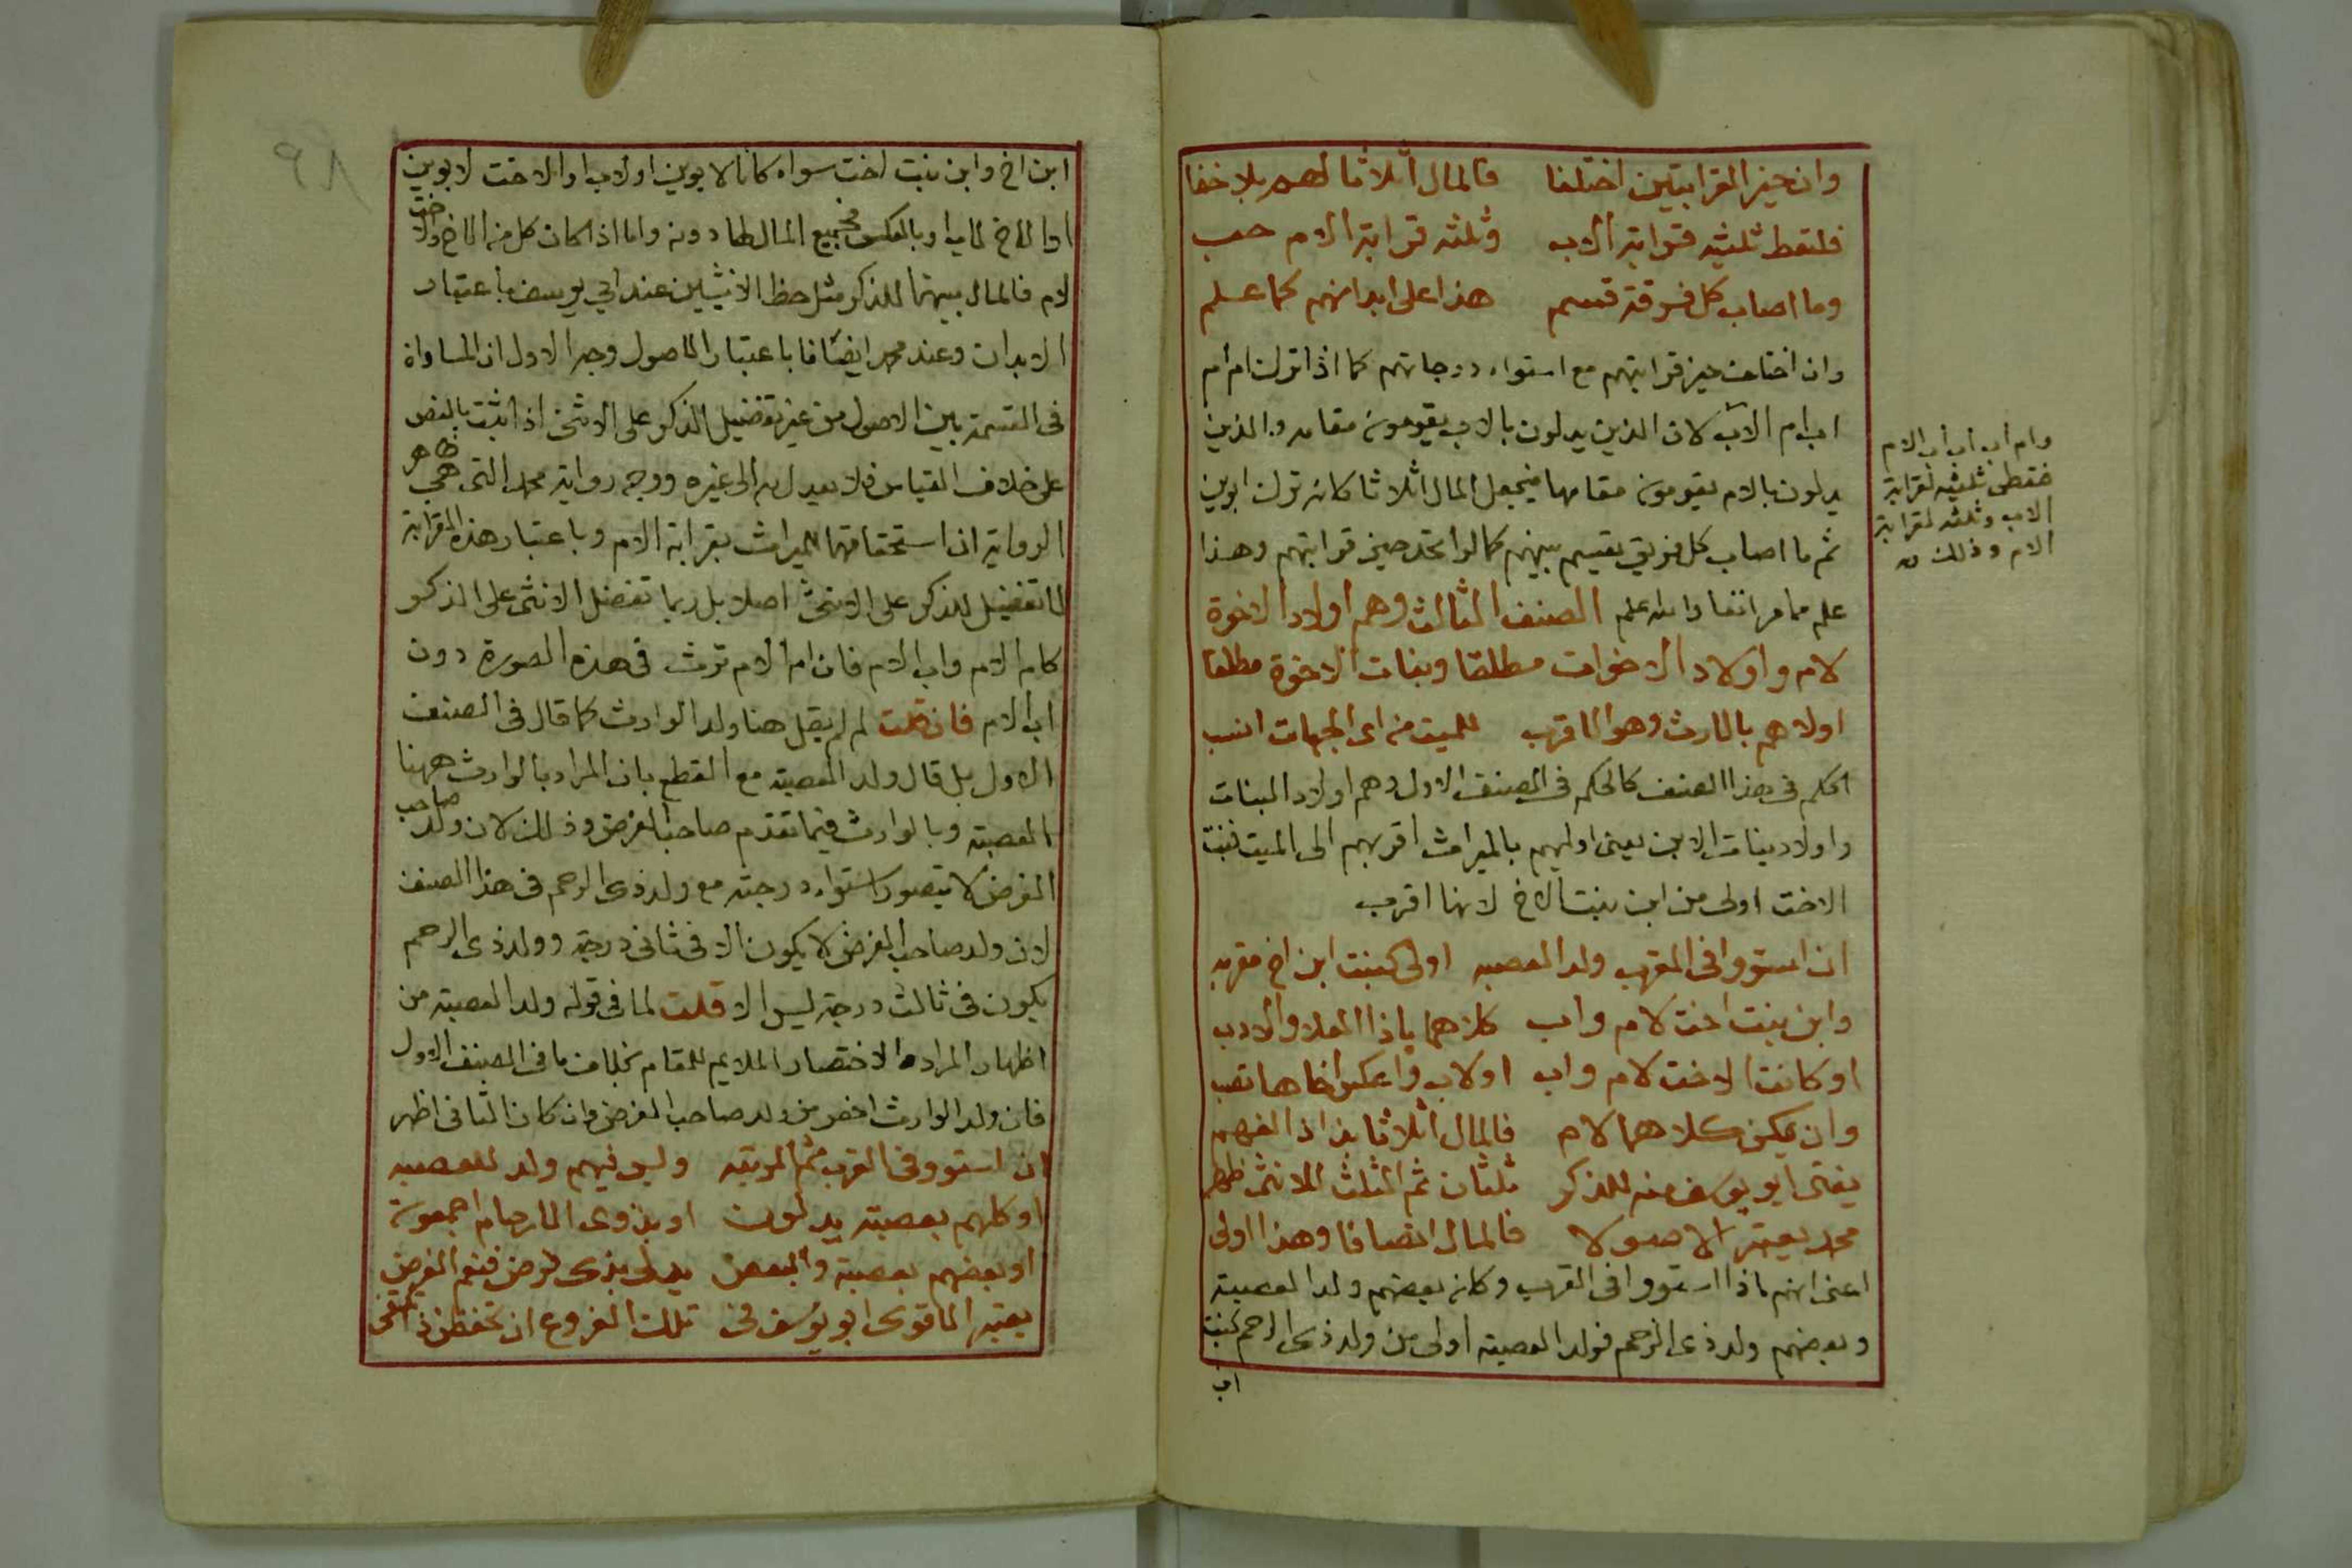 وان حيز القرابتين اختلفا فالمال اثلاثا لهم بلا خفا
فلتعط ثلثيه قرابة الاب وثلثه قرابة الام حب
وما اصاب كل فرقة قسم هذا على ابدانهم كما علم
وان اختلف حيز قرابتهم مع استواء درجاتهم كما اذا ترك ام ام
اب ام الاب لان الذين يدلون بالاب يقومون مقامه والذين
يدلون بالام يقومون مقامها فيجعل المال اثلاثا كانه ترك ابوين
ثم ما اصاب كل فريق يقسم بينهم كما لو اتحد حيز قرابتهم وهذا
علم مما مر انفا والله اعلم الصنف الثالث وهم اولاد الاخوة
لام واولاد الاخوات مطلقا وبنات الاخوة مطلقا
اولاهم بالارث وهو الاقرب للميت من اى الجهات انسب
الحكم في هذا الصنف كالحكم فى الصنف الاول وهم اولاد البنات
واولاد بنات الابن يعنى اولهم بالميراث اقربهم الى الميت فبنت
الاخت اولى من ابن بنت الاخ لانها اقرب
ان استووا فى القرب ولد العصبه اولى كبنت ابن اخ مقربه
وابن بنت اخت لام واب كلاهما ياذا العلا والادب
او كانت الاخت لام واب او لاب واعكس اخاها تصب
وان يكن كلاهما لام فالمال اثلاثا بذا ذا الفهم
يفتى ابو يوسف منه للذكر ثلثان ثم الثلث للانثى ظهر
محمد يعتبر الاصولا فالمال انصافا وهذا اولى
اعنى انهم اذا استووا فى القرب وكان بعضهم ولد العصبة
وبعضهم ولد ذى الرحم فولد العصبة اولى من ولد ذى الرحم كبنت
ابن
وام اب اب اب الام
فتعطى ثلثيه لقرابة
الاب وثلثه لقرابة
الام وذلك
ابن اخ وابن بنت اخت سواء كانا لابوين او لاب او الاخت لابوين
او الاخ لاب او بالعكس فجميع المال لها دونه واما اذا كان كل من الاخ والاخت
لام فالمال بينهما للذكر مثل حظ الانثيين عند ابي يوسف باعتبار
الابدان وعند محمد انصافا باعتبار الاصول وجه الاول ان المساواة
فى القسمة بين الاصول من غير تفضيل الذكر على الانثى اذا ثبت بالنص
على خلاف القياس فلا يعدل به الى غيره ووجه رواية محمد التى هى ظاهر
الرواية ان استحقاقهما للميراث بقرابة الام وباعتبار هذه القرابة
لا تفضيل للذكر على الانثى اصلا بل ربما تفضل الانثى على الذكر
كام الام واب الام فان ام الام ترث فى هذه الصورة دون
اب الام فان قلت لم لم يقل هنا ولد الوارث كما قال فى الصنف
الاول بل قال ولد العصبة مع القطع بان المراد بالوارث ههنا
العصبة وبالوارث فيما تقدم صاحب الفرض وذلك لان ولد صاحب
الفرض لا يتصور استواء درجته مع ولد ذى الرحم فى هذا الصنف
لان ولد صاحب الفرض لا يكون الا فى ثانى درجة وولد ذى الرحم
يكون فى ثالث درجة ليس الا قلت لما فى قوله ولد العصبة من
اظهار المراد والاختصار الملايم للمقام بخلاف ما فى الصنف الاول
فان ولد الوارث اخصر من ولد صاحب الفرض وان كان الثانى اظهر
ان استووا فى القرب ثم المرتبه وليس فيهم ولد للعصبه
او كلهم بعصبة يدلون او بذوى الارحام اجمعون
او بعضهم بعصبة والبعض يدلى بذى فرض فنعم الفرض
يعتبر الاقوى ابو يوسف فى تلك الفروع ان تحفظن ذا تكتفى